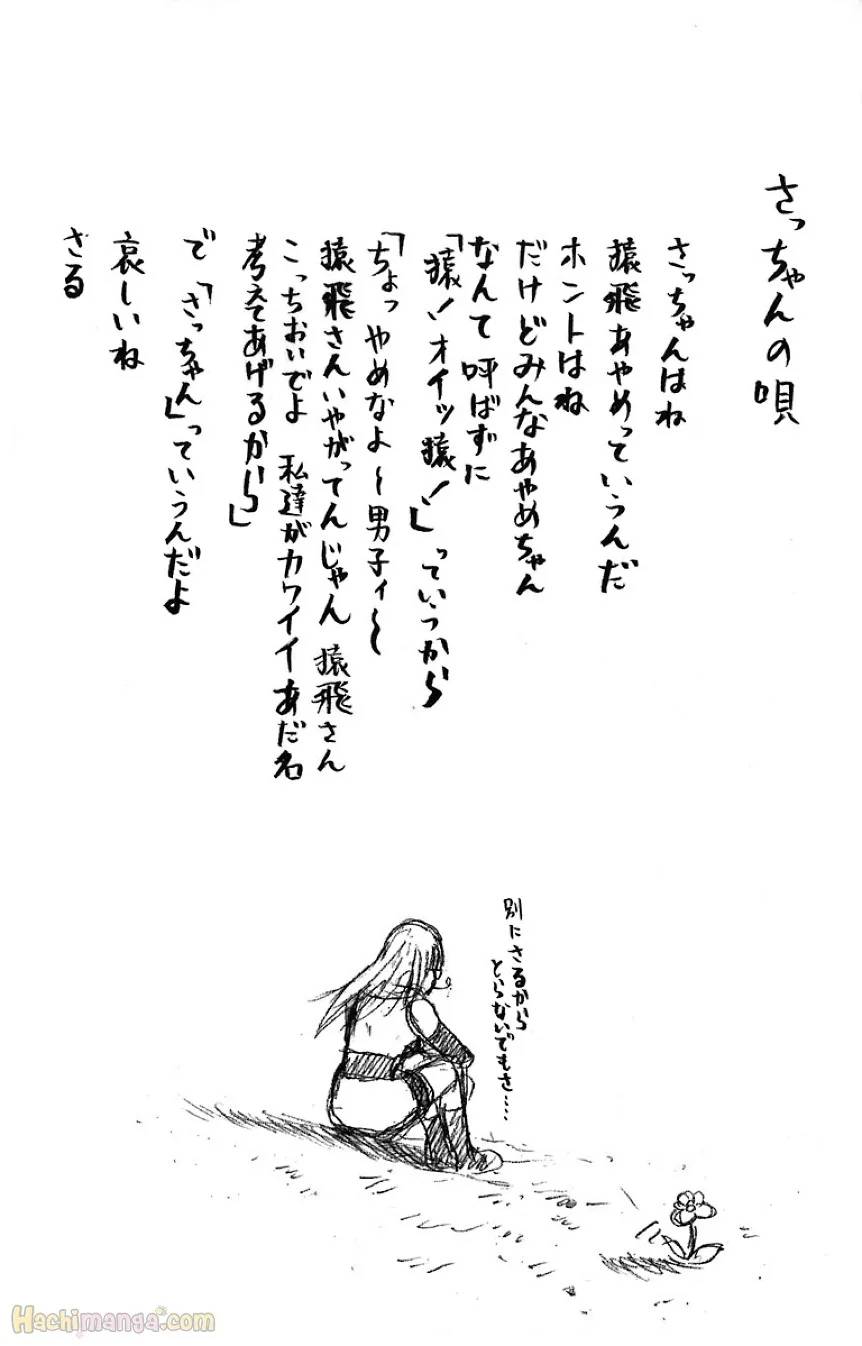 さっちゃんの唄
さっちゃんはね
猿飛あやめっていうんだ
ホントはね
だけどみんなあやめちゃん
なんて呼ばずに
「猿!オイッ猿!」っていうから
「ちょっやめなよ〜男子ィ〜
猿飛さんいやがってんじゃん 猿飛さん
こっちおいでよ 私達がカワイイあだ名
考えてあげるから」
で「さっちゃん」っていうんだよ
哀しいね
さる
別にさるから
とらないでもさ…
Hachimanga.com